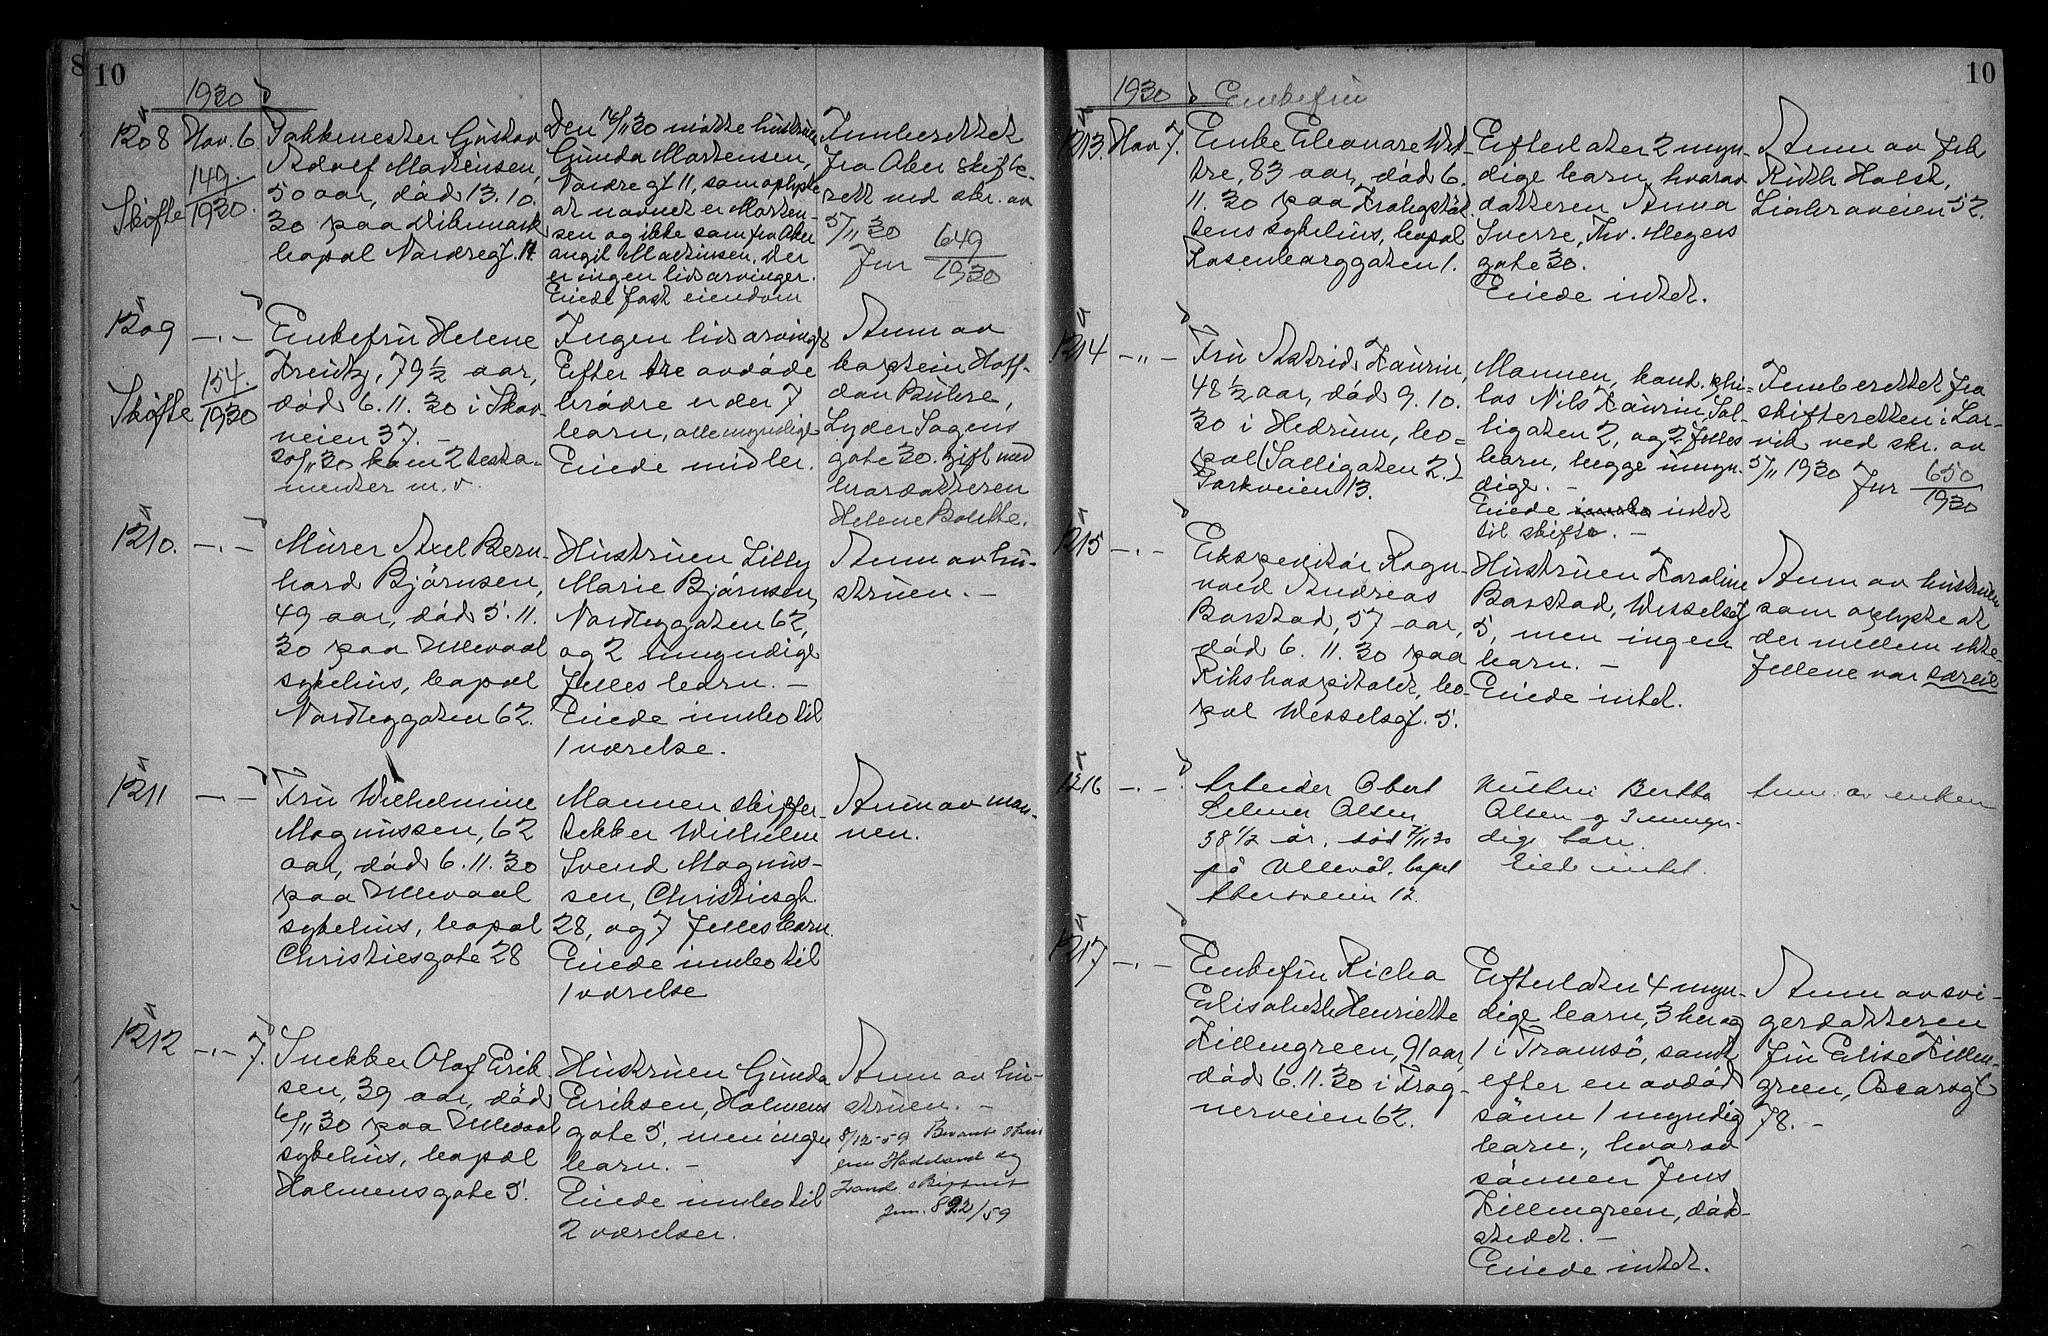 10
1930
1208 Nov. 6.
149.
1930.
Skifte
Takkemester Gustav
Adolf Martinsen,
50 aar, död 13.10.
30 paa Dikemark
bopæl Nordregt. 11.
Den 14/11 30 mötte hustruen
Gunda Mortensen,
Nordregt 11, som oplyste
at navnet er Morten-
sen og ikke som fra Aker
angit Martinsen. Der
er ingen livsarvinger.
Eiede fast eiendom
Innberettet
fra Aker skifte-
rett ved skr. av
5/11 30
Jnr 649
1930
1209 -"-
154.
1930
Skifte
Enkefru Helene
Kreutz, 79 1/2 aar,
död 6.11.30 i Skov-
veien 37. -
20/11 30 kom 2 testa-
menter m.v.
Ingen livsarving
Efter tre avdöde
brödre er der 7
barn, alle myndige
Eiede midler.
Anm av
kaptein Half-
dan
Lyder Sagens
gate 30. Gift med
brordatteren
Helene
1210. -"-
Murer Axel Bern-
hard Björnsen,
49 aar, död 5.11.
30 paa Ullevaal
sykehus, bopæl
Nordbyggaten 62.
Hustruen Lilly
Marie Björnsen,
Nordbyggaten 62,
og 2 umyndige
felles barn. -
Eiede innbo til
1 værelse.
Anm av hu-
struen. -
1211 -"-
Fru Wilhelmine
Magnussen, 62
aar, död 6.11.30
paa Ullevaal
sykehus, bopæl
Christiesgate 28
Mannen skipper-
Wilhelm
Svend Magnus-
sen, Christiesgt.
28, og 7 felles barn.
Eiede innbo til
1 værelse
Anm av man-
nen.
1212 -"- 7.
Snekker Olaf Erik-
sen, 39 aar, död
6/11 30 paa Ullevaal
sykehus, bopæl
Holmensgate 5.
Hustruen Gunda
Eriksen, Holmens
gate 5, men ingen
barn. -
Eiede innbo til
2 værelser.
Anm av hu-
struen. -
8/12-59
fra Hadeland og
Land
Jnr. 892/59
10
1930
Enkefru
1213. Nov 7.
Enke Eleonore Wet-
tre, 83 aar, död 6.
11.30 paa Prologstöt
tens sykehus, bopæl
Rosenborggaten 1.
Efterlater 2 myn-
dige barn, hvorav
datteren Anna
Sverre, Thv. Meyers
gate 30.
Eiede intet.
Anm av frk
Ruth Holst,
52.
1214 -"-
Fru Astrid Kaurin,
48 1/2 aar, död 9.10.
30 i Hedrum, bo-
pæl (Solligaten 2.)
Parkveien 13.
Mannen, kand. phi-
los Nils Kaurin, Sol-
ligaten 2, og 2 felles
barn, begge umyn-
dige. -
Eiede intet
til skifte. -
Innberettet fra
skifteretten i Lar-
vik ved skr. av
5/11 1930 Jnr 650
1930
1215 -"-
Ekspeditör Ragn-
vald Andreas
Borstad, 57 aar,
död 6.11.30 paa
Rikshospitalet, bo-
pæl Wesselsgt. 5.
Hustruen Karoline
Borstad, Wesselsgt
5, men ingen
barn. -
Eiede intet.
Anm av hustruen
som oplyste at
der mellem ekte-
fellene var særeie
1216 -"-
Arbeider Obert
Selmer Olsen
38 1/2 år, död 7/11 30
på Ullevål. bopel
12.
Hustru Bertha
Olsen og 3 umyn-
dige barn.
Eied intet.
Anm. av enken
1217 -"-
Enkefru Ricka
Elisabeth Henriette
Killengreen, 91 aar,
död 6.11.30 i Frog-
nerveien 62.
Efterlater 4 myn-
dige barn, 3 her og
1 i Tromsö, samt
efter en avdöd
sönn 1 myndig
barn, hvorav
sönnen Jens
Killengreen, död-
stedet. -
Eiede intet.
Anm av svi-
gerdatteren
fru Elise Killen-
green, Oscarsgt
78. -